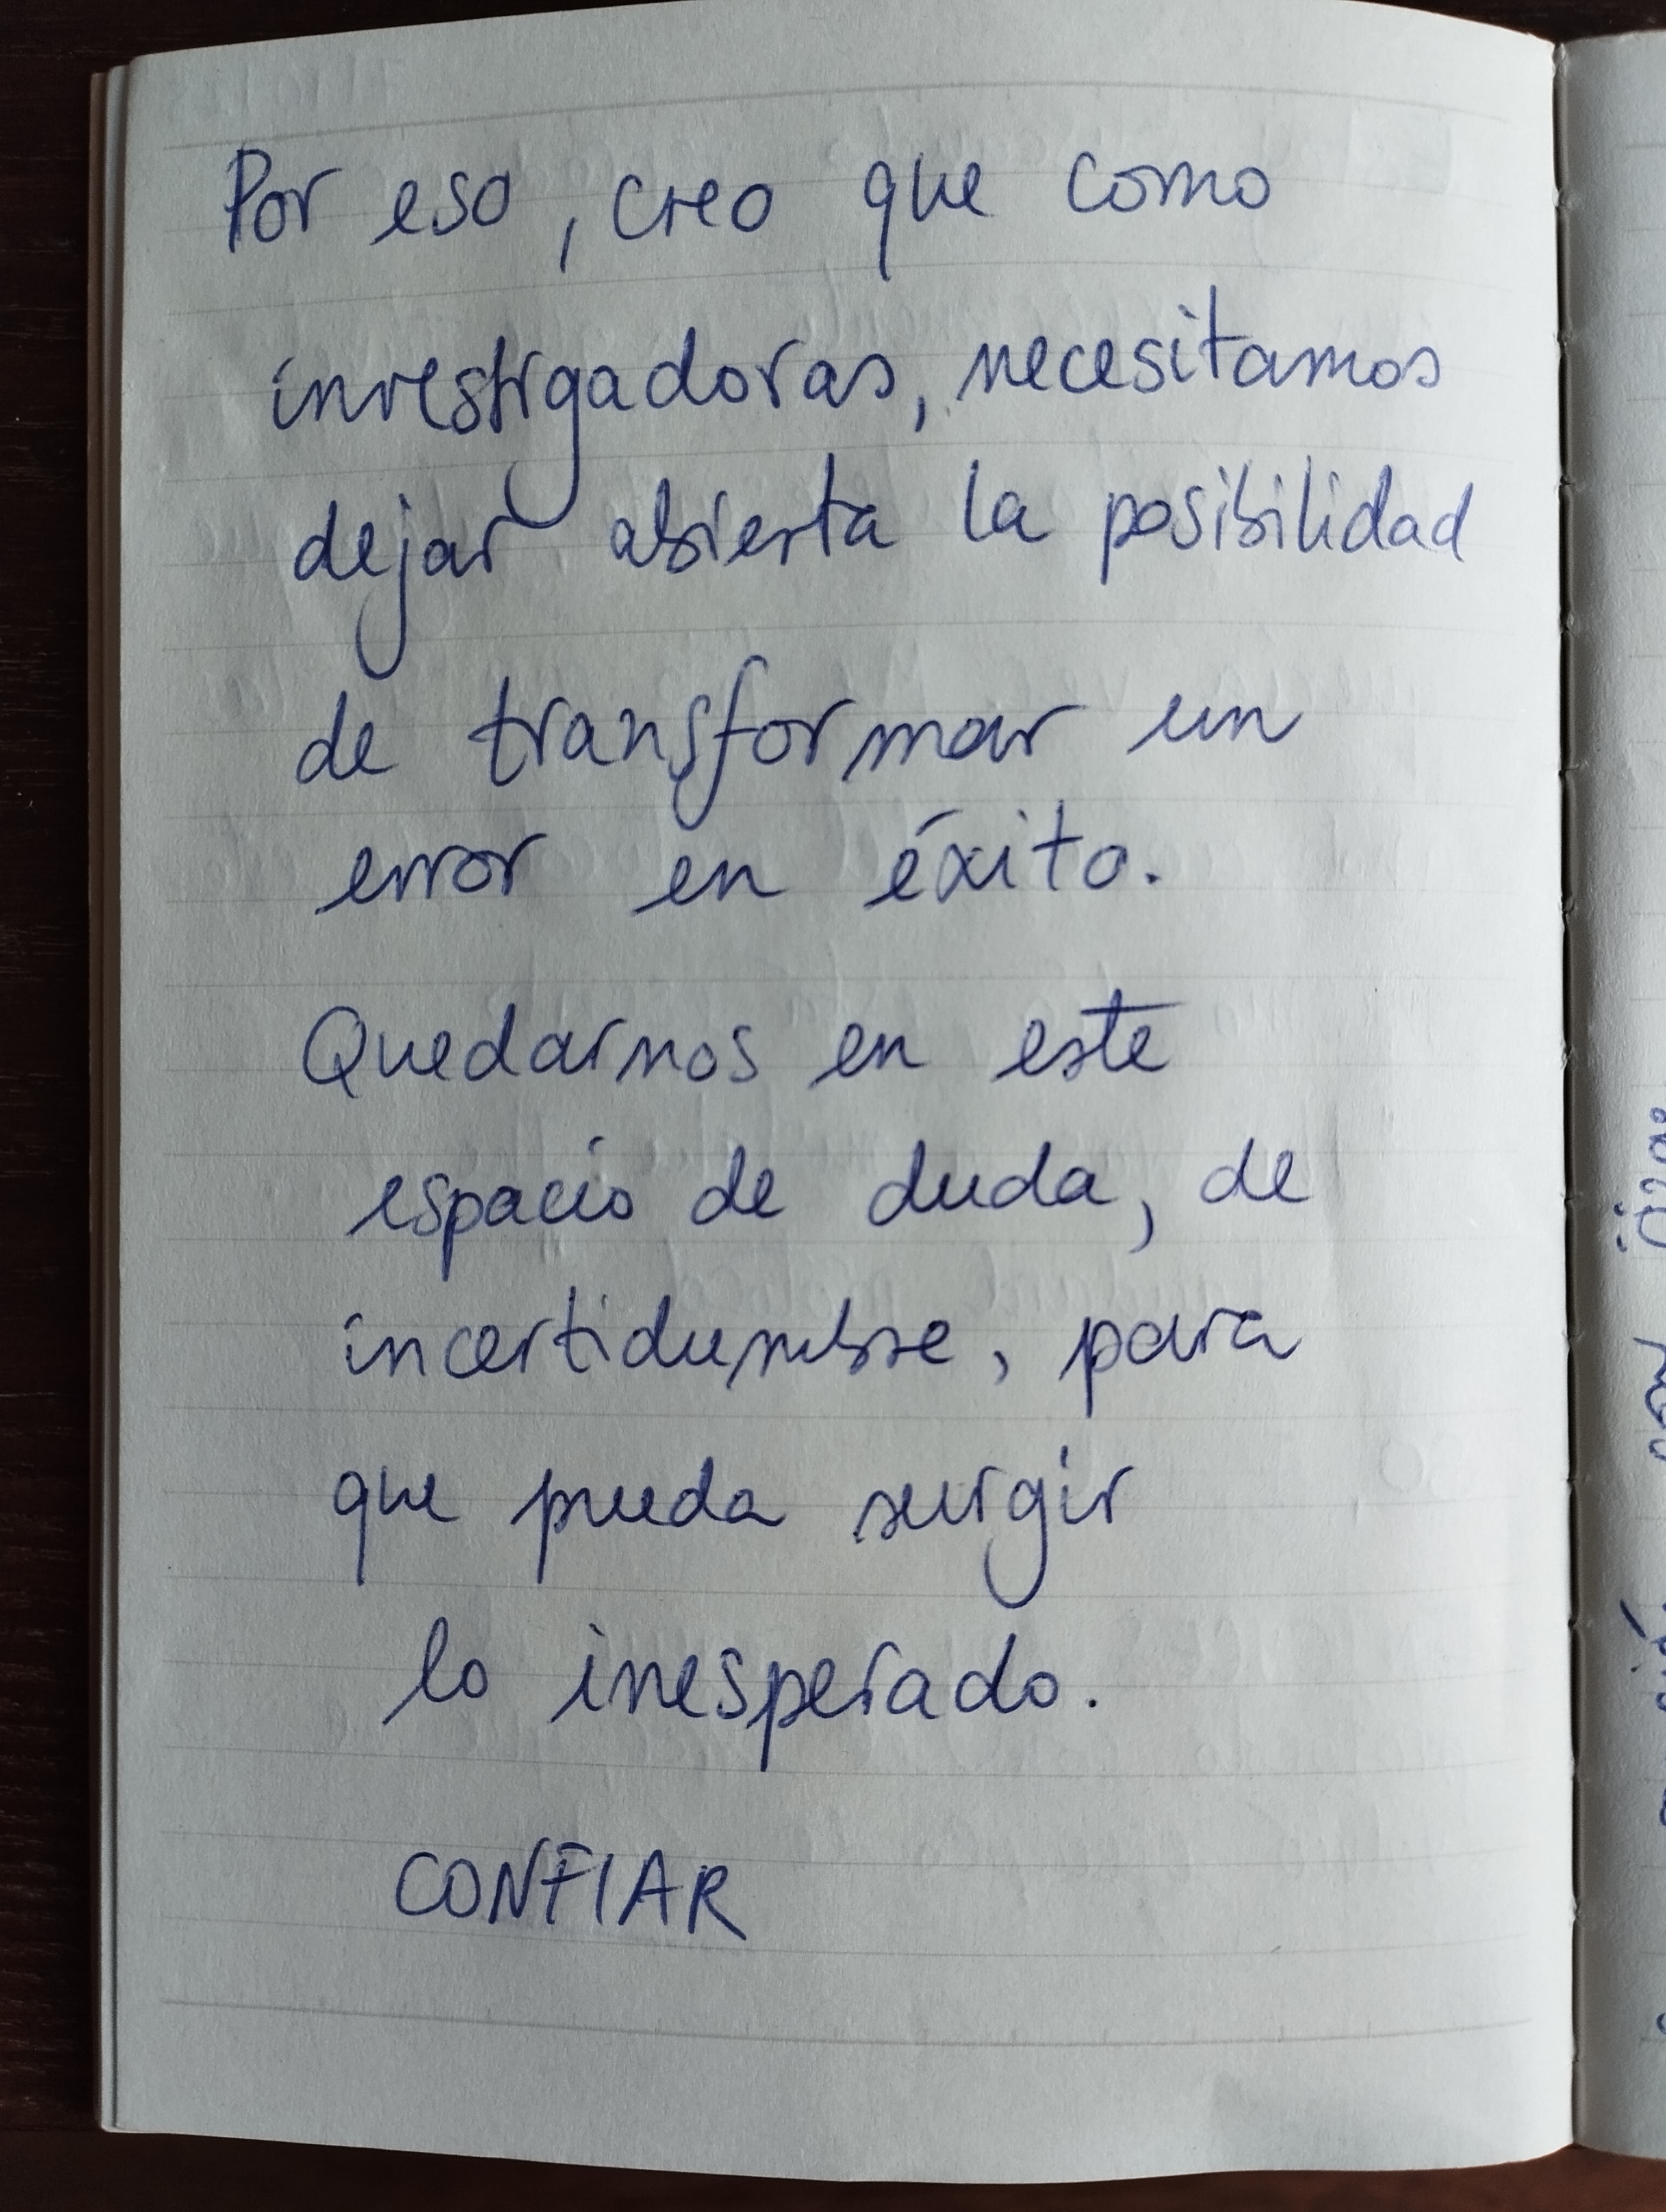 Por eso, creo que como
investigadoras, necesitamos
dejar abierta la posibilidad
de transformar un
error en éxito.
Quedarnos en este
espacio de duda, de
incertidumbre, para
que pueda surgir
lo inesperado.
CONFIAR